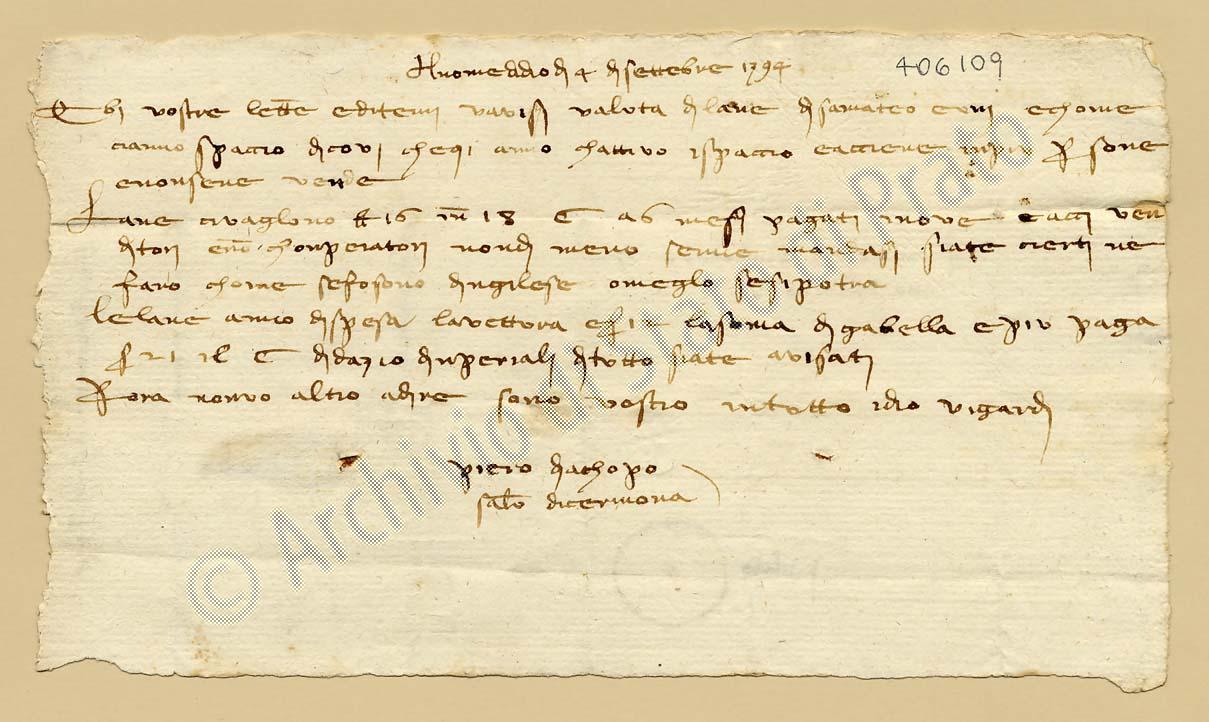 Al nome di dio dì 4 di settebre 1394
406109
Ebi vostre lettere e ditemi v'avisi valuta di lane di samateo e vui e chome
cianno spaccio di covi che qi anno chattivo ispaccio e accene in piu persone
e non sene vende
Lane ci vaglono 16 in 18 C a 6 mesi pagati inove e acci ven
ditori e non chonperatori nondimeno se mme mandasi siate cierti ne
faro chome se fosono d'ingilese o meglo se si potra
le lane anno di spesa la vettura e la soma di gabella e piu paga
il C di dazio d'inperiali di tutto siate avisati
Per ora non vo altro a dire sono vostro in tutto idio vi gardi
piero dachopo
salute di cermona
© Archivio di Stato di Prato